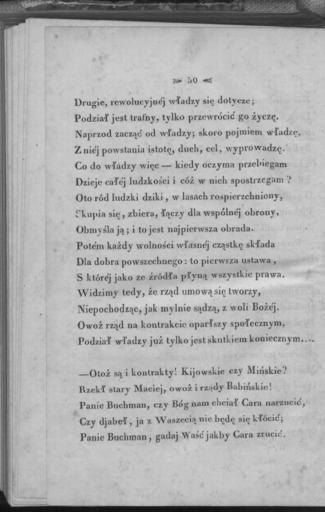 50
Drugie, rewolucyjnéj władzy się dotycze;
Podział jest trafny, tylko przewrócić go życzę.
Naprzod zacząć od władzy; skoro pojmiem władzę,
Z niéj powstania istotę, duch, cel, wyprowadzę.
Co do władzy więc — kiedy oczyma przebiegam
Dzieje całéj ludzkości i cóż w nich spostrzegam?
Oto ród ludzki dziki, w lasach rospierzchniony,
Skupia się, zbiera, łączy dla wspólnéj obrony,
Obmyśla ją; i to jest najpierwsza obrada.
Potém każdy wolności własnéj cząstkę składa
Dla dobra powszechnego: to pierwsza ustawa,
S któréj jako ze źródła płyną wszystkie prawa.
Widzimy tedy, że rząd umową się tworzy,
Niepochodząc, jak mylnie sądzą, z woli Bożéj.
Owoż rząd na kontrakcie oparłszy społecznym,
Podział władzy już tylko jest skutkiem koniecznym....
—Otoż są i kontrakty! Kijowskie czy Mińskie?
Rzekł stary Maciej, owoż i rządy Babińskie!
Panie Buchman, czy Bóg nam chciał Cara narzucić,
Czy djabeł, ja z Waszecią nie będę się kłócić;
Panie Buchman, gadaj Waść jakby Cara zrucić.